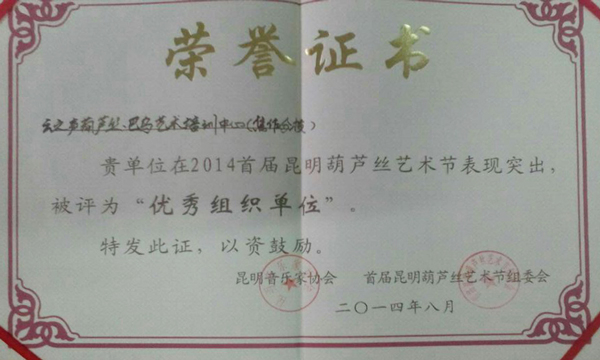 荣誉证书
云之声葫芦丝、巴乌艺术培训中心(焦作分校)
贵单位在2014首届昆明葫芦丝艺术节表现突出,
被评为“优秀组织单位”。
特发此证,以资鼓励。
昆明音乐家协会 首届昆明葫芦丝艺术节组委会
二〇一四年八月